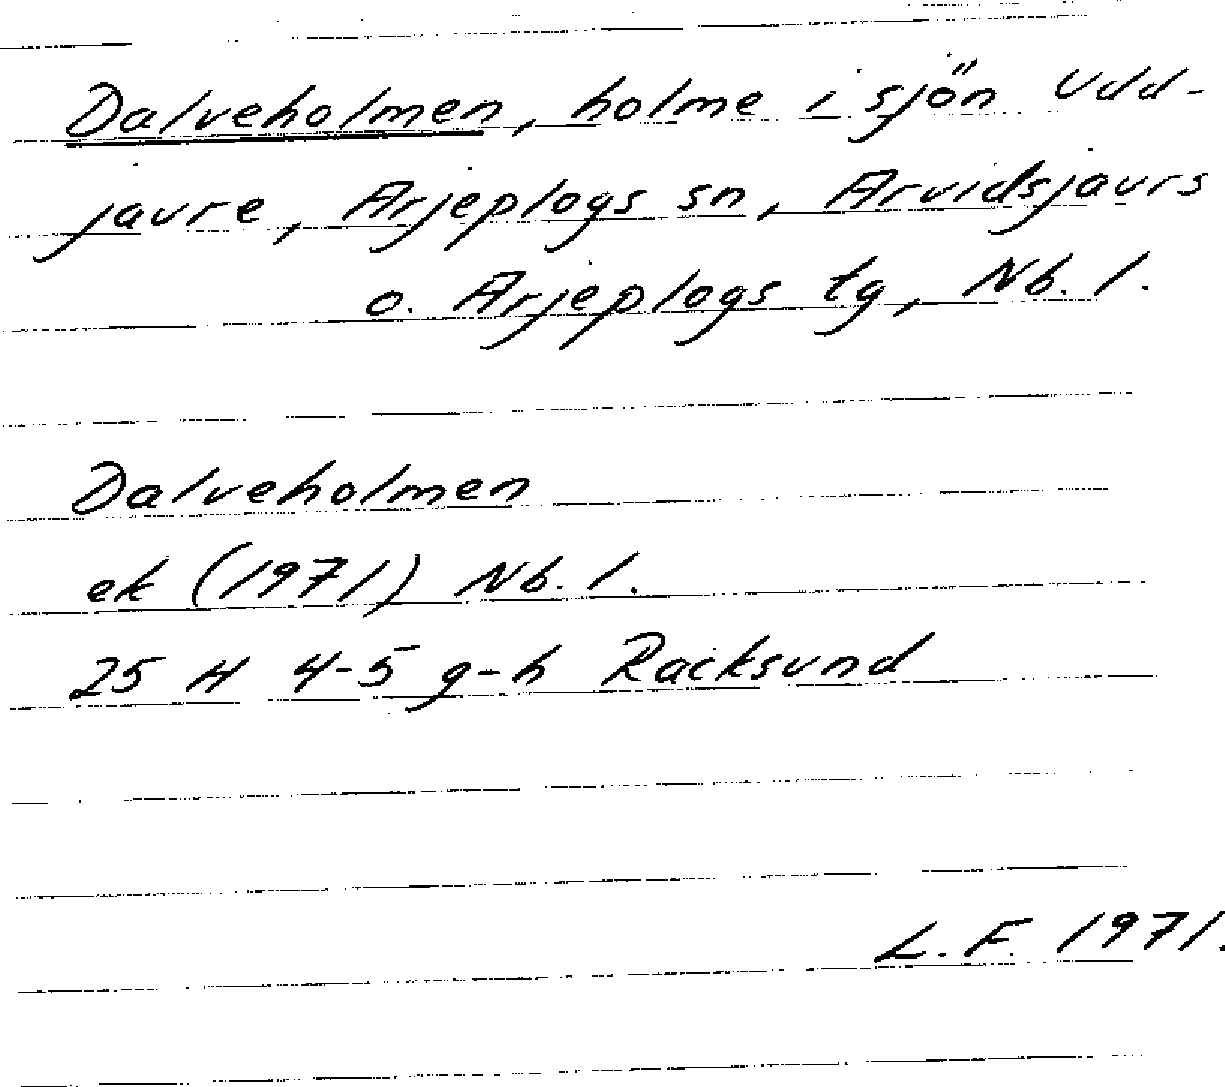 Dalveholmen, holme i sjön Udd-
jaure, Arjeplogs sn, Arvidsjaurs
o. Arjeplogs tg, Nb. l.
Dalveholmen
ek (1971) Nb. l.
25 H 4-5 g-h Racksund
L. F. 1971.